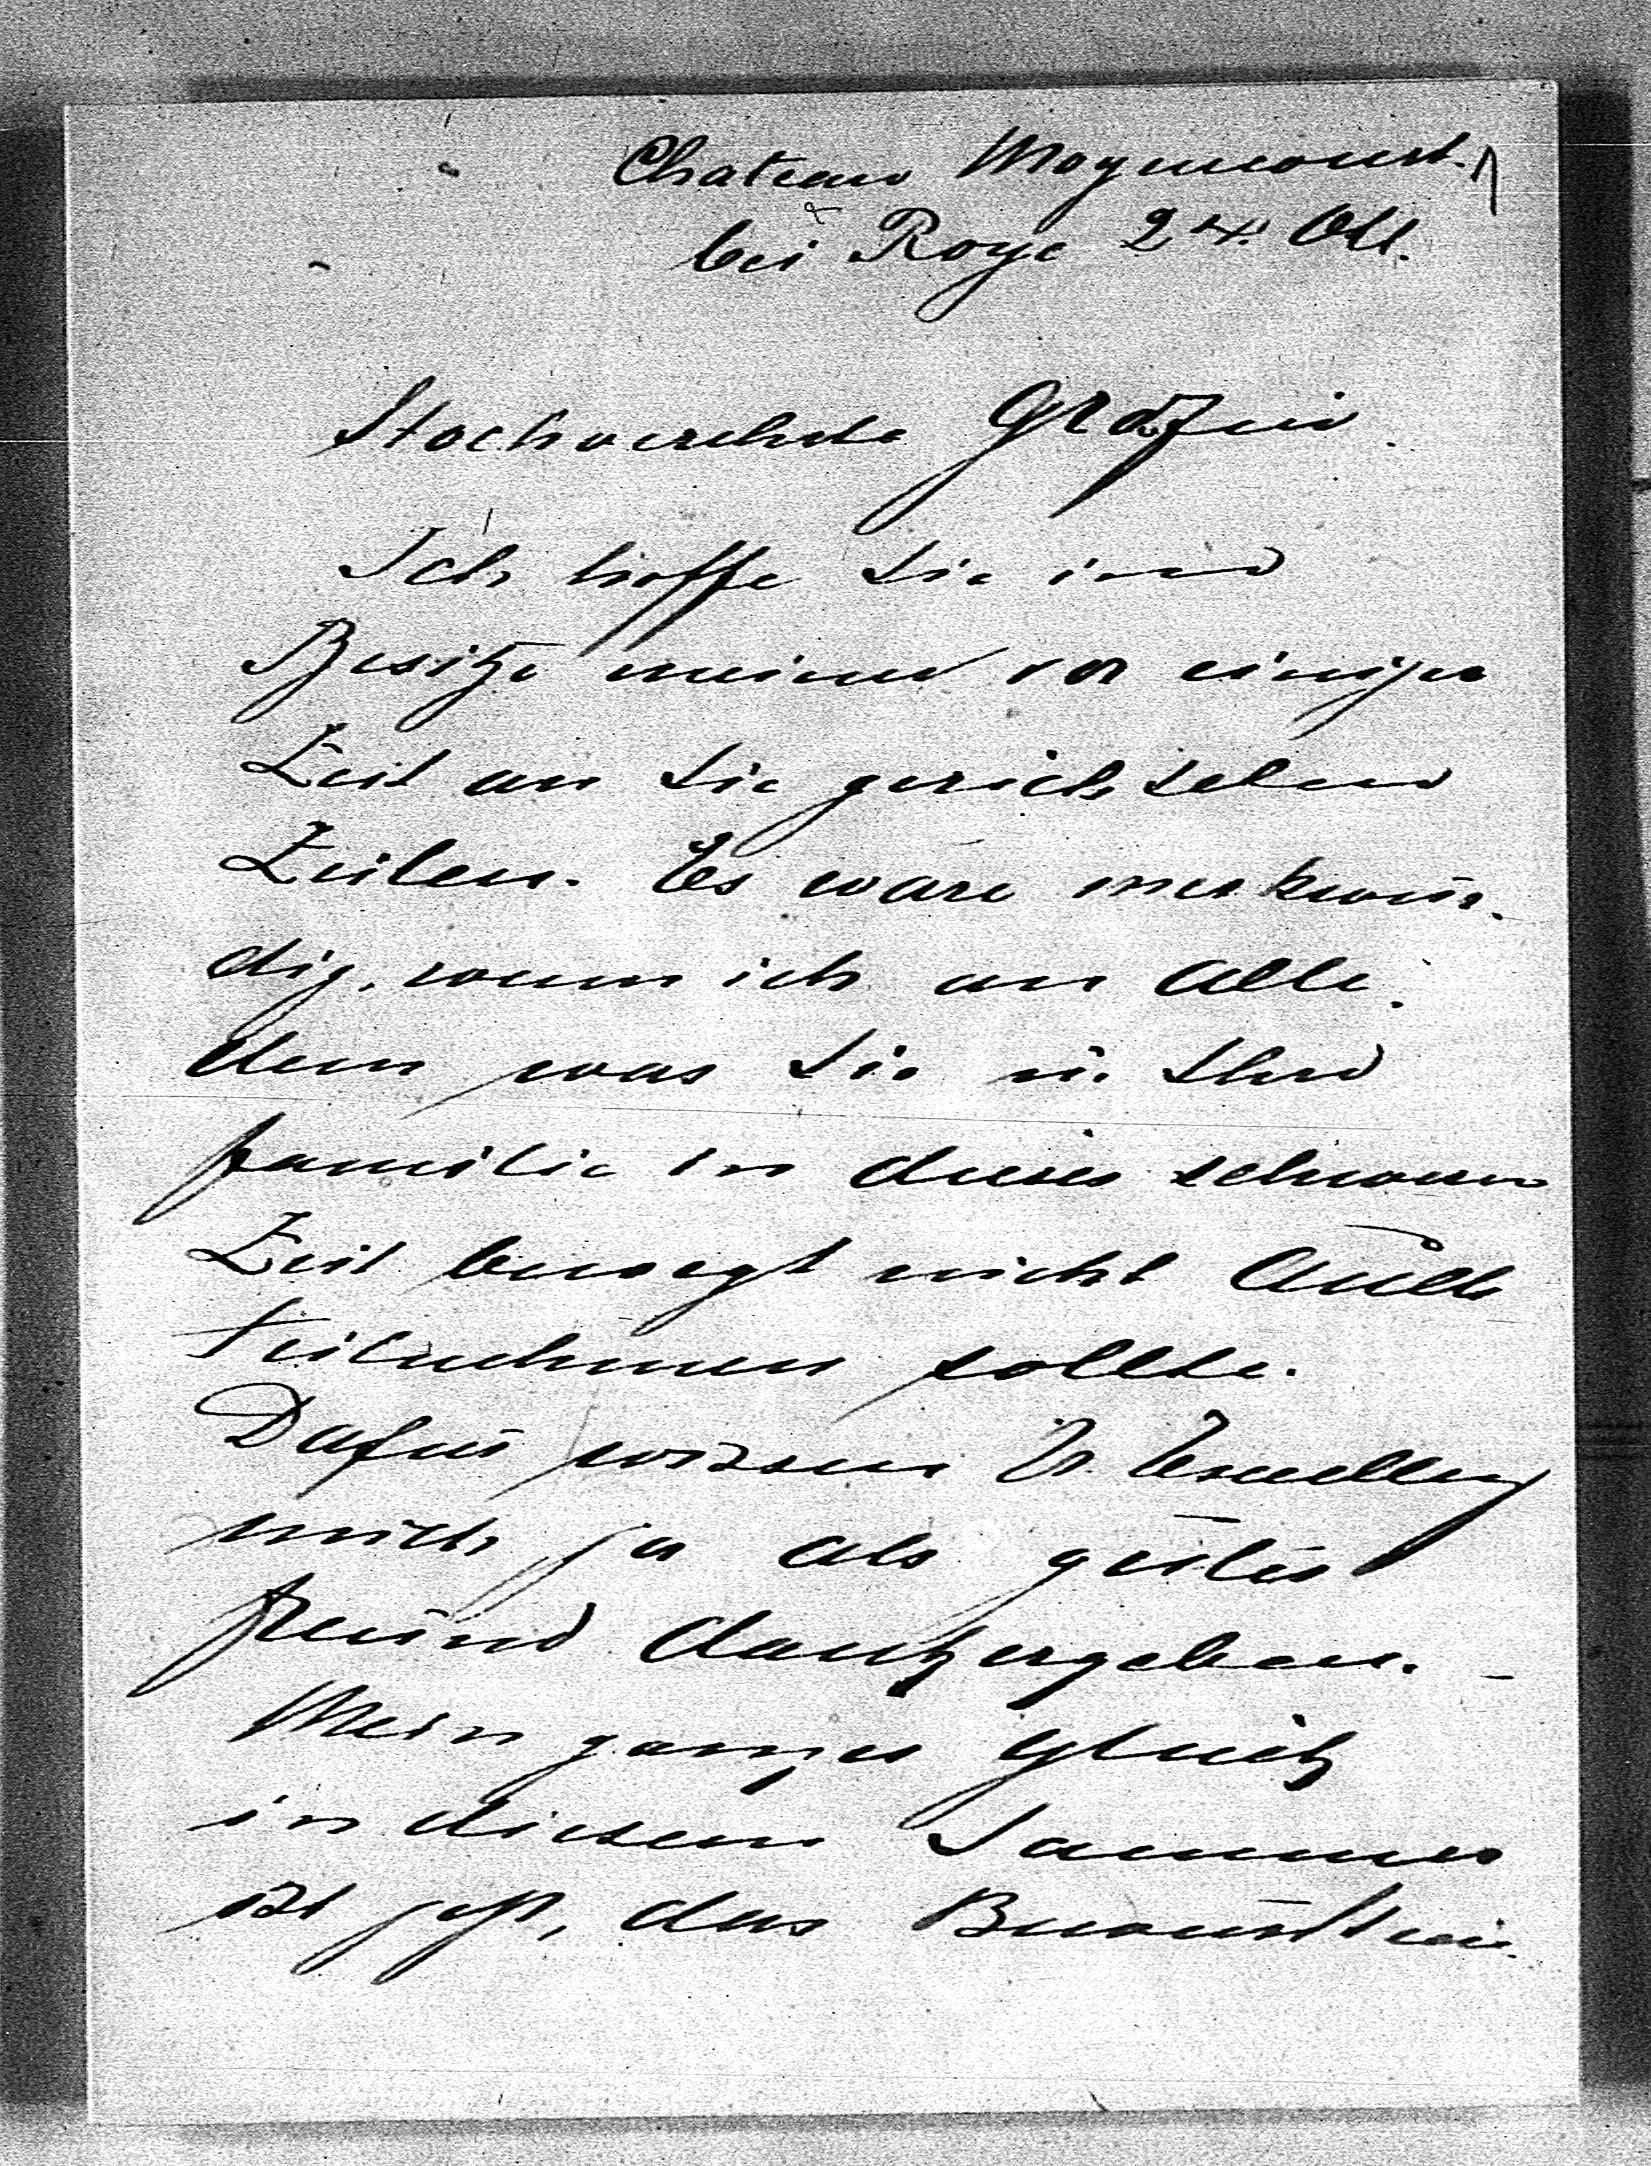 Chateau Moyencourt
bei Roye 24. Okt.
Hochverehrte Gräfin
Ich hoffe Sie im
Besitze meiner vor einiger
Zeit an Sie gerichteten
Zeilen. Es wäre merkwür-
dig, wenn ich an alle
dem was Sie u. Ihre
Familie in dieser schweren
Zeit bewegt nicht
teilnehmen sollte.
Dafür wissen Ew. Excellenz
mich ja als guten
Freund dankergeben. –
Mein ganzes Glück
in diesem Jammer
ist jetzt, das Bewusstsein